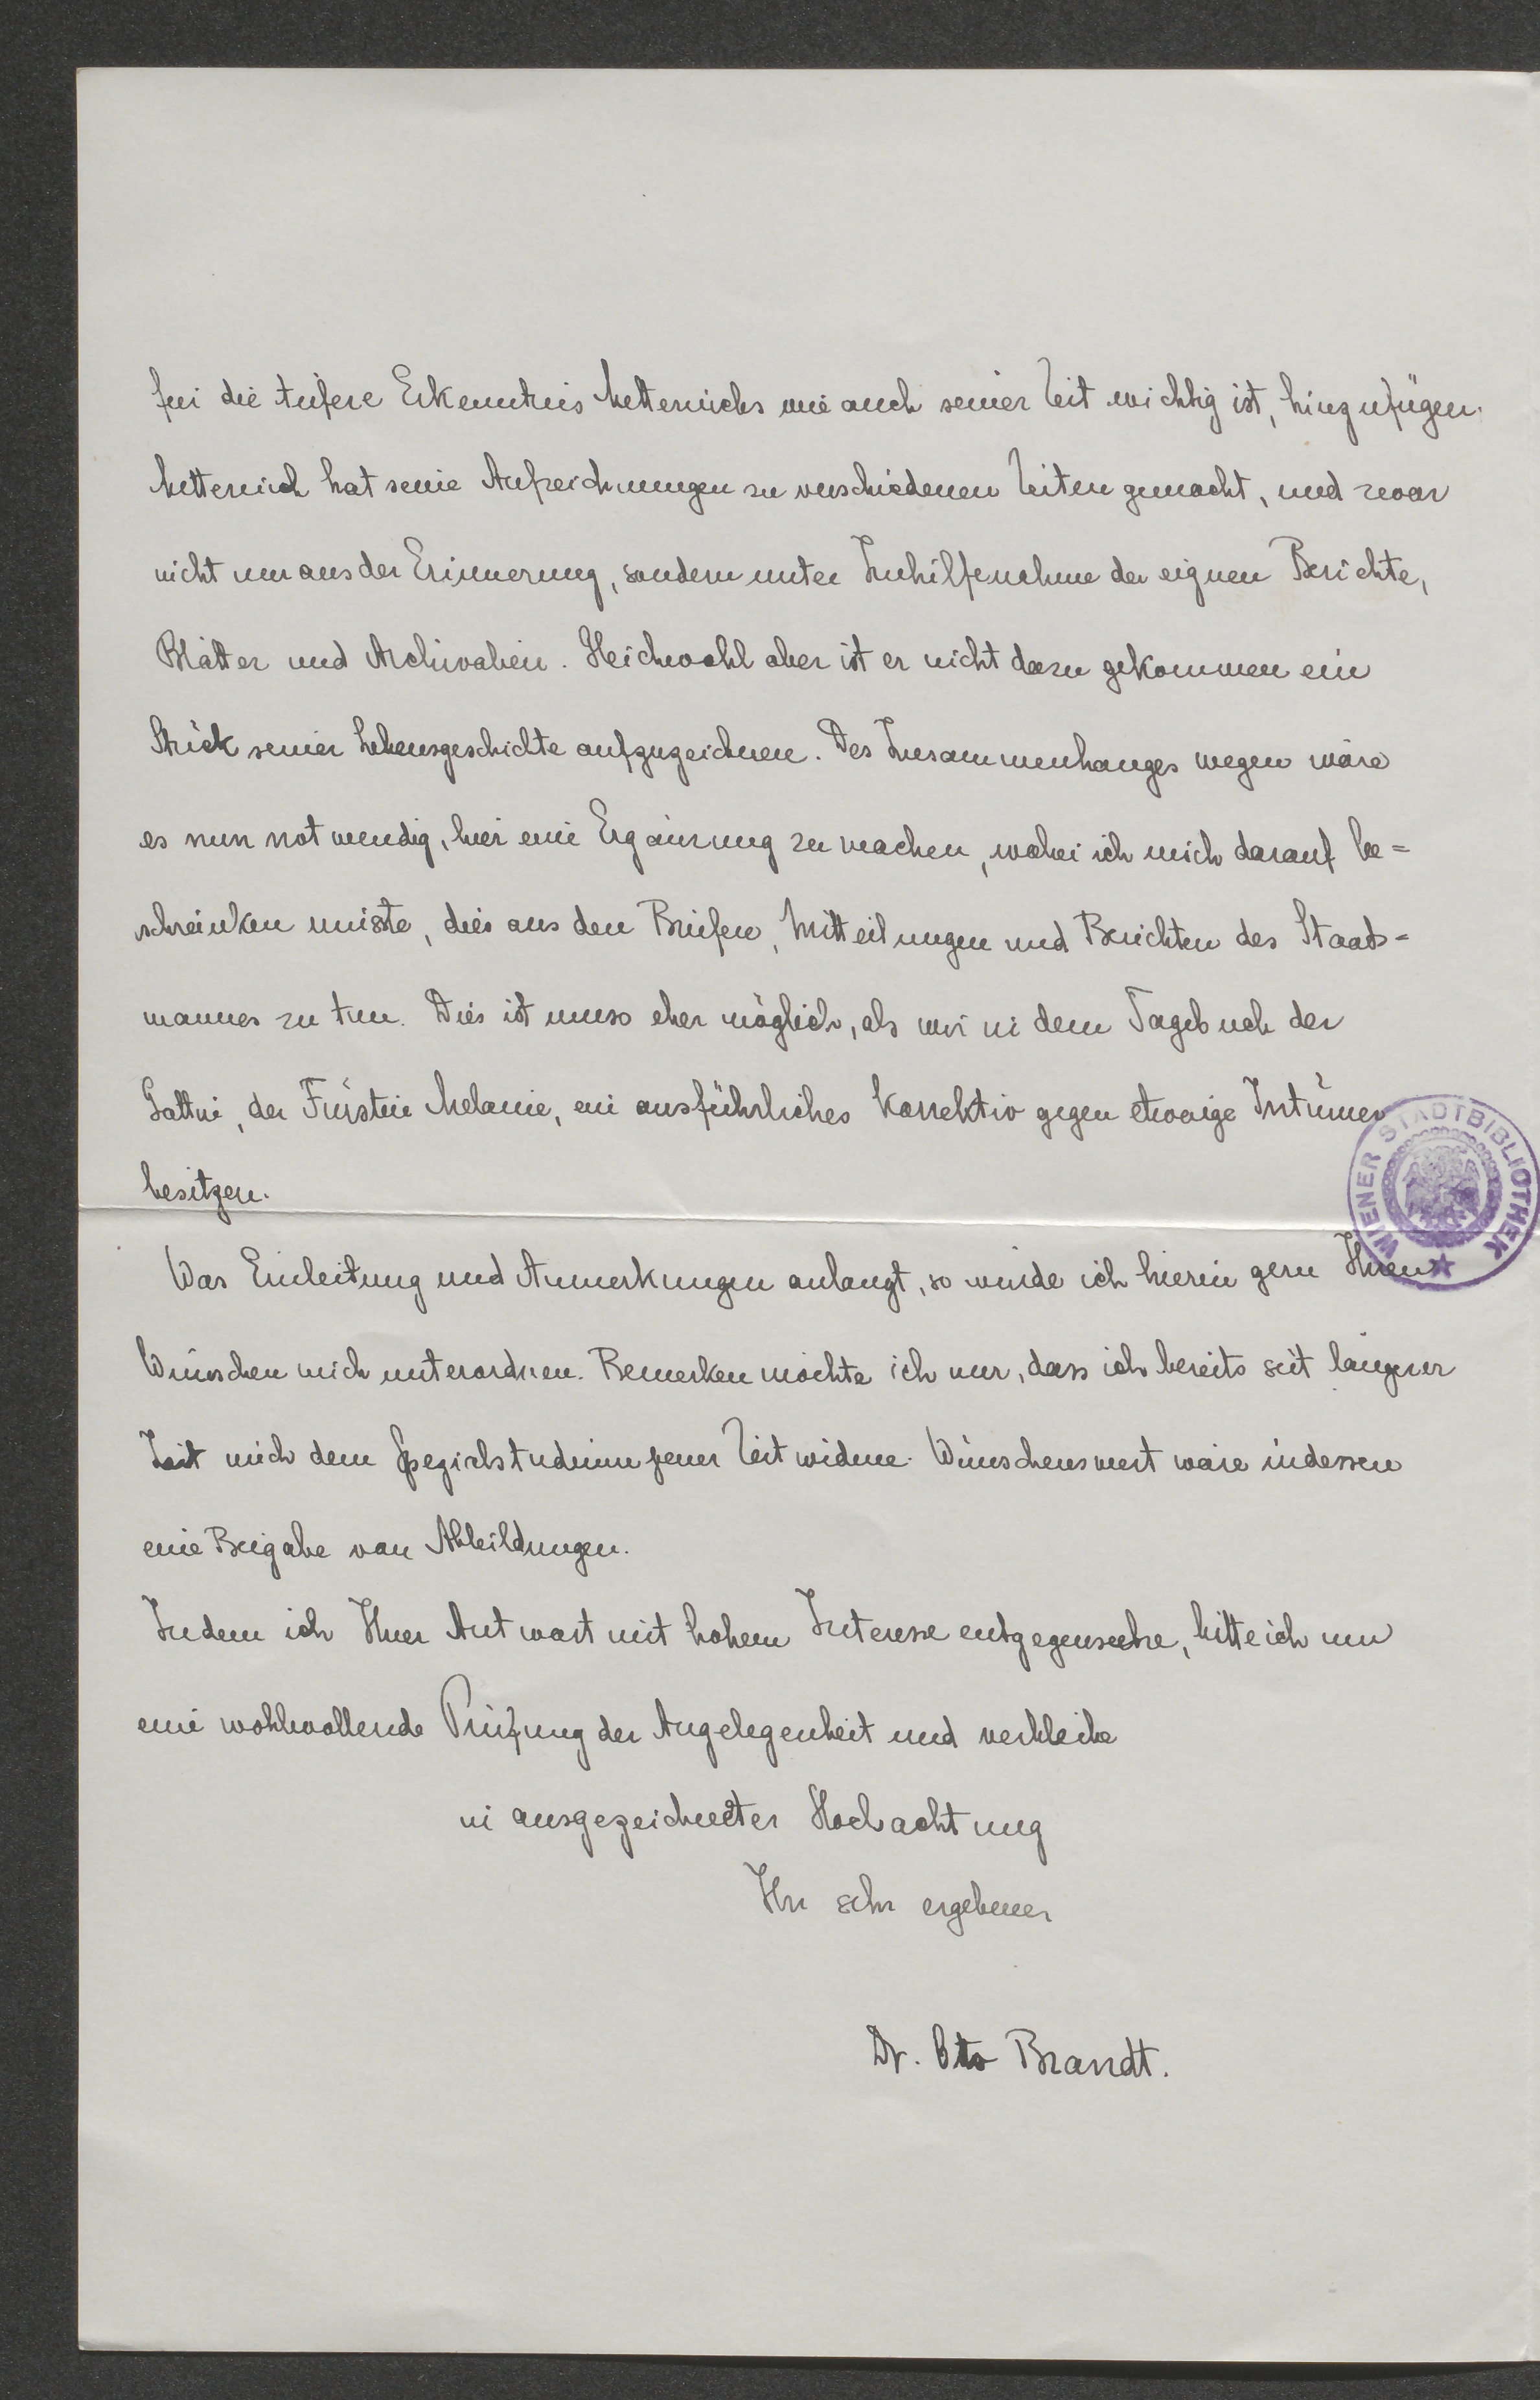 für die tiefere Erkenntnis Metternichs wie auch seiner Zeit wichtig ist, hinzufügen.
Metternich hat seine Aufzeichnungen zu verschiedenen Zeiten gemacht, und zwar
nicht nur aus der Erinnerung, sondern unter Zuhilfenahme der eignen Berichte,
Blätter und Archivalien. Gleichwohl aber ist er nicht dazu gekommen ein
Stück seiner Lebensgeschichte aufzuzeichnen. Des Zusammenhanges wegen wäre
es nun notwendig, hier eine Ergänzung zu machen, wobei ich mich darauf be=
schränken müsste, dies aus den Briefen, Mitteilungen und Berichten des Staats=
mannes zu tun. Dies ist umso eher möglich, als wir in dem Tagebuch der
Gattin, der Fürstin Melanie, ein ausführliches Korrektiv gegen etwaige Irrtümer
besitzen.
WIENER STADTBIBLIOTHEK
Was Einleitung und Anmerkungen anlangt, so würde ich hierin gern Ihren
Wünschen mich unterordnen. Bemerken möchte ich nur, dass ich bereits seit längerer
Zeit mich dem Spezialstudium jener Zeit widme. Wünschenswert wäre indessen
eine Beigabe von Abbildungen.
Indem ich Ihrer Antwort mit hohem Interesse entgegensehe, bitte ich um
eine wohlwollende Prüfung der Angelegenheit und verbleibe
in ausgezeichneter Hochachtung
Ihr sehr ergebener
Dr. Otto Brandt.